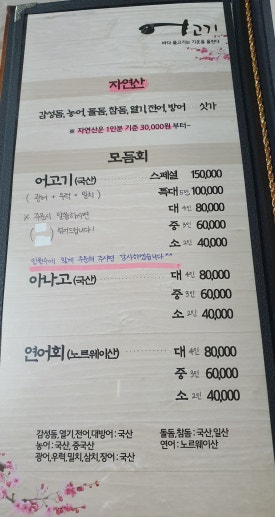 어고기
자연산
감성돔, 농어, 돌돔, 참돔, 열기, 전어, 방어 싯가
※ 자연산은 1인분 기준 30,000원 부터~
모듬회
어고기(국산) 스페셜 150,000
(광어 + 우럭 + 밀치) 특대 5인 100,000
※ 주문시 말씀하시면 대 4인 80,000
드립니다! 중 3인 60,000
소 2인 40,000
인원수에 맞게 주문해 주시면 감사하겠습니다^^
아나고(국산) 대 4인 80,000
중 3인 60,000
소 2인 40,000
연어회(노르웨이산) 대 4인 80,000
중 3인 60,000
소 2인 40,000
감성돔,열기,전어,대방어 : 국산 돌돔,참돔 : 국산,일산
농어 : 국산, 중국산 연어 : 노르웨이산
광어,우럭,밀치,삼치,장어 : 국산